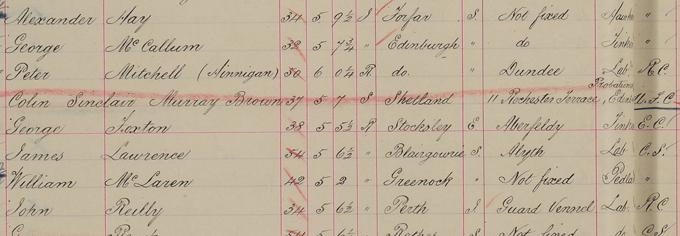 Alexander Hay 34 5 9½ S Forfar S. Not fixed Hawker "
George McCallum 32 5 7¾ " Edinburgh " do Tinker "
Peter Mitchell (Ninnigan) 50 6 0¼ R do. " Dundee Lab. R.C.
Colin Sinclair Murray Brown 37 5 7 S Shetland 11 Rochester Terrace, Edinr U.F.C.
George Foxton 38 5 5½ R Stocksley E. Aberfeldy Tinker E.C.
James Lawrence 54 5 6½ " Blairgowrie S. Alyth Lab. C.S.
William McLaren 42 5 2 " Greenock " Not fixed Pedlar "
John Reilly 34 5 6½ " Perth S. Guard Vennel Lab. R.C.
Not fixed do C.S.